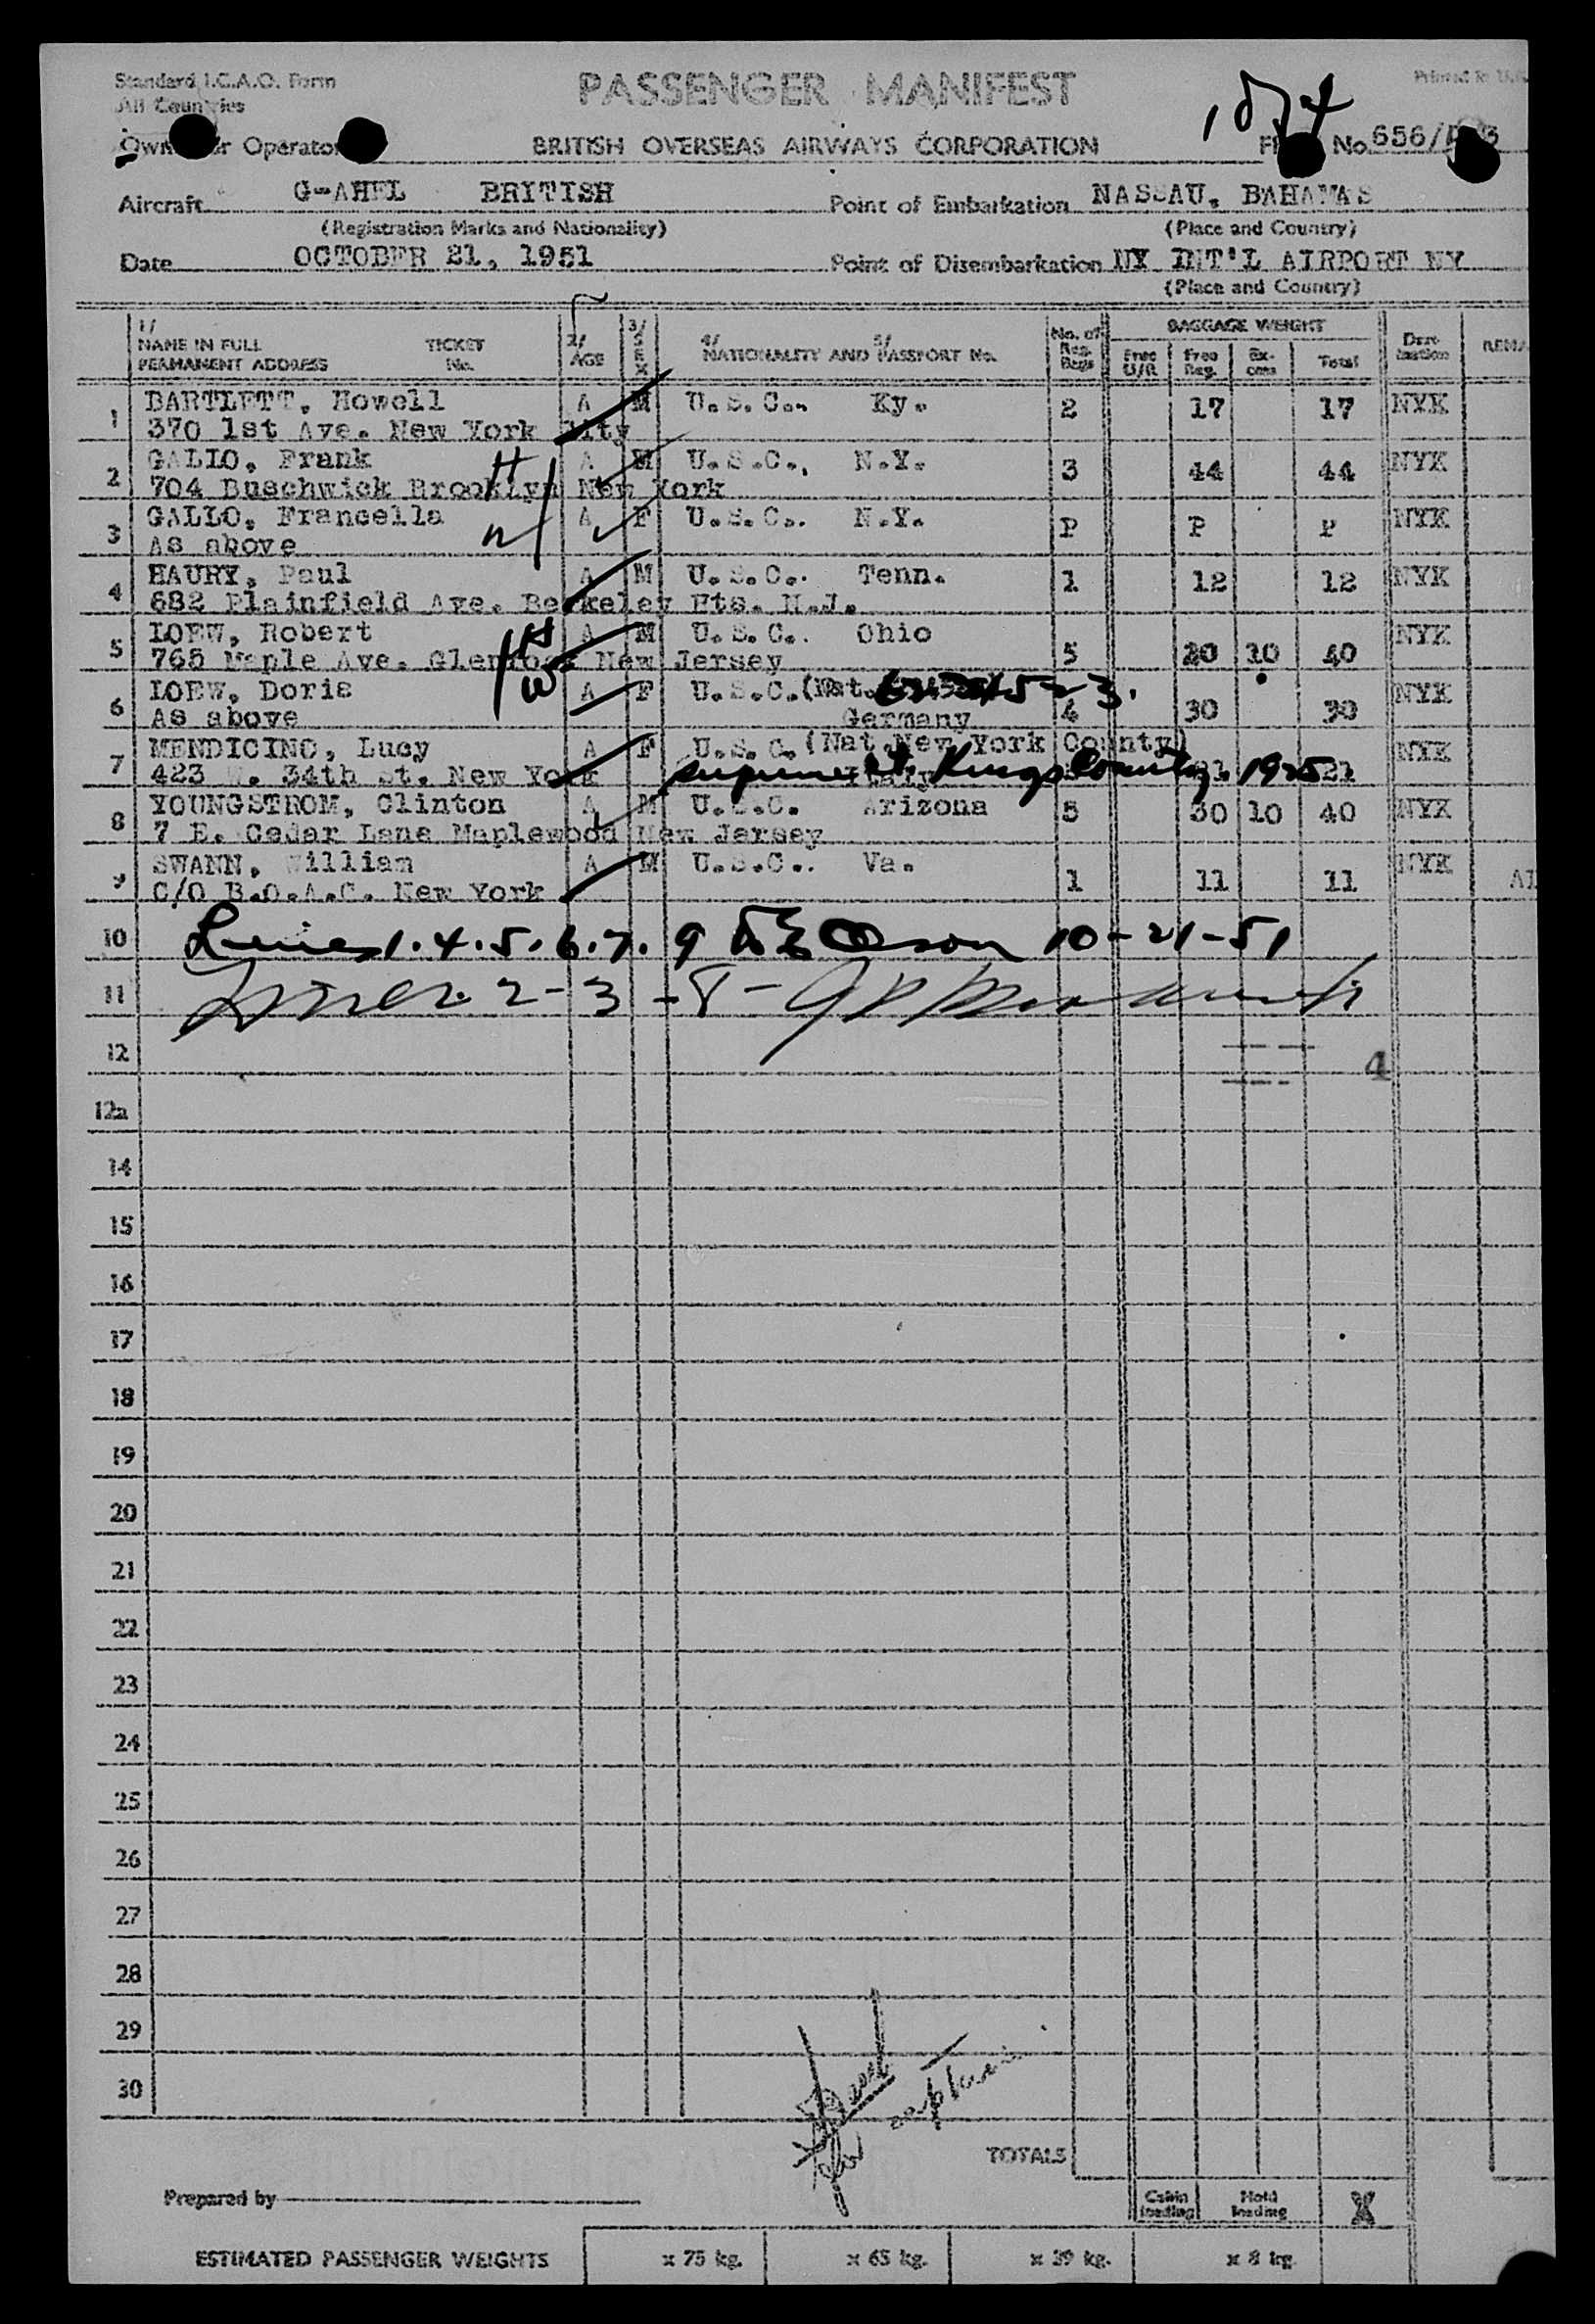 Standard I.C.A.O. Form
All Countries
PASSENGER MANIFEST
Printed in
Owner or Operator
BRITISH OVERSEAS AIRWAYS CORPORATION
No. 656/
Aircraft G-AHEL BRITISH
Point of Embarkation NASSAU, BAHAMAS
(Registration Marks and Nationality)
(Place and Country)
Date OCTOBER 21, 1951
Point of Disembarkation NY INT'L AIRPORT NY
(Place and Country)
1/ NAME IN FULL TICKET No. PERMANENT ADDRESS
2/ AGE
3/ SEX
4/ 5/ NATIONALITY AND PASSPORT No.
No. of Reg. Bags
BAGGAGE WEIGHT
Free U/R Free Reg. Ex-cess Total
Destination
REMA
1 BARTLETT, Howell A M U.S.C.. Ky. 2 17 17 NYK
370 1st Ave. New York City
2 GALLO, Frank H A M U.S.C., N.Y. 3 44 44 NYK
704 Buschwick Brooklyn New York
3 GALLO, Francella W A F U.S.C.. N.Y. P P P NYK
As above
4 HAURY, Paul A M U.S.C.. Tenn. 1 12 12 NYK
682 Plainfield Ave. Berkeley Hts. N.J.
5 LOEW, Robert H A M U.S.C.. Ohio 5 30 10 40 NYK
765 Maple Ave. Glenrock New Jersey
6 LOEW, Doris W A F U.S.C. (Nat. 4 30 30 NYK
As above Germany
7 MENDICINO, Lucy A F U.S.C. (Nat New York County) NYK
423 W. 34th St. New York Italy 21 21
supreme Ct. Kings County. 1925
8 YOUNGSTROM, Clinton A M U.S.C. Arizona 5 30 10 40 NYK
7 E. Cedar Lane Maplewood New Jersey
9 SWANN, William A M U.S.C.. Va. 1 11 11 NYK
C/O B.O.A.C. New York
10 Lines 1.4.5.6.7.9 Olson 10-21-51
11 Lines 2-3-8-
12
4
12a
14
15
16
17
18
19
20
21
22
23
24
25
26
27
28
29
30
for captain
TOTALS
Prepared by
Cabin loading Hold loading
ESTIMATED PASSENGER WEIGHTS x 75 kg. x 65 kg. x 39 kg. x 8 kg.